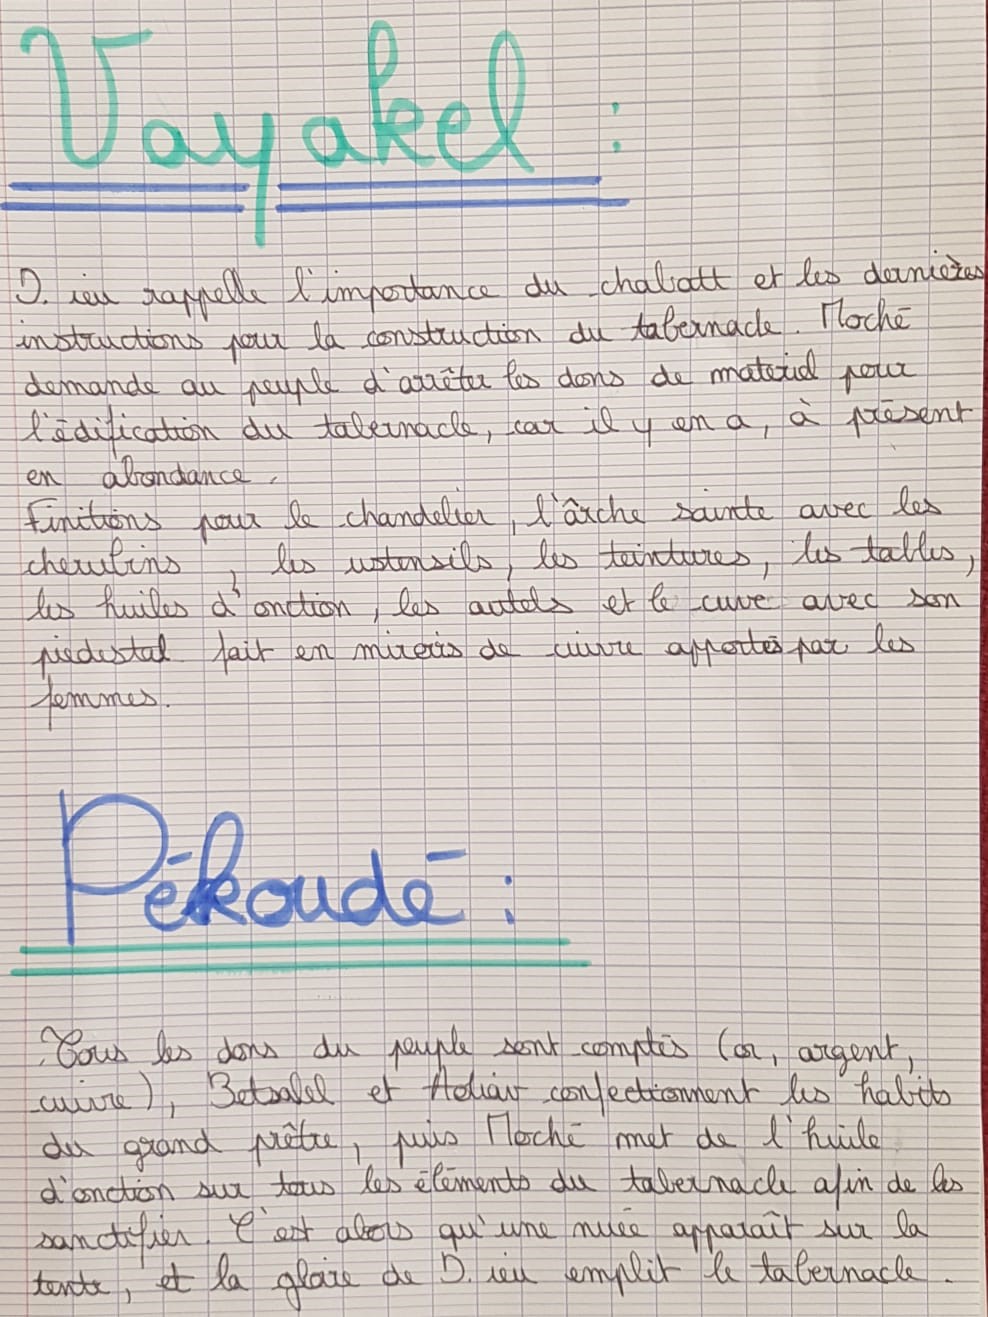 Vayakel :
D. ieu rappelle l'importance du chabatt et les dernières
instructions pour la construction du tabernacle. Moché
demande au peuple d'arrêter les dons de material pour
l'édification du tabernacle, car il y en a, à présent
en abondance.
Finitions pour le chandelier, l'ârche sainte avec les
cherubins, les ustensils, les teintures, les tables,
les huiles d'onction, les autels et le cuve avec son
piédestal fait en miroirs de cuivre apportés par les
femmes.
Pékoudé :
Tous les dons du peuple sont comptés (or, argent,
cuivre), Betsalel et Aoliav confectionnent les habits
du grand prêtre, puis Moché met de l'huile
d'onction sur tous les éléments du tabernacle afin de les
sanctifier. C'est alors qu'une nuée apparaît sur la
tente, et la gloire de D. ieu emplit le tabernacle.